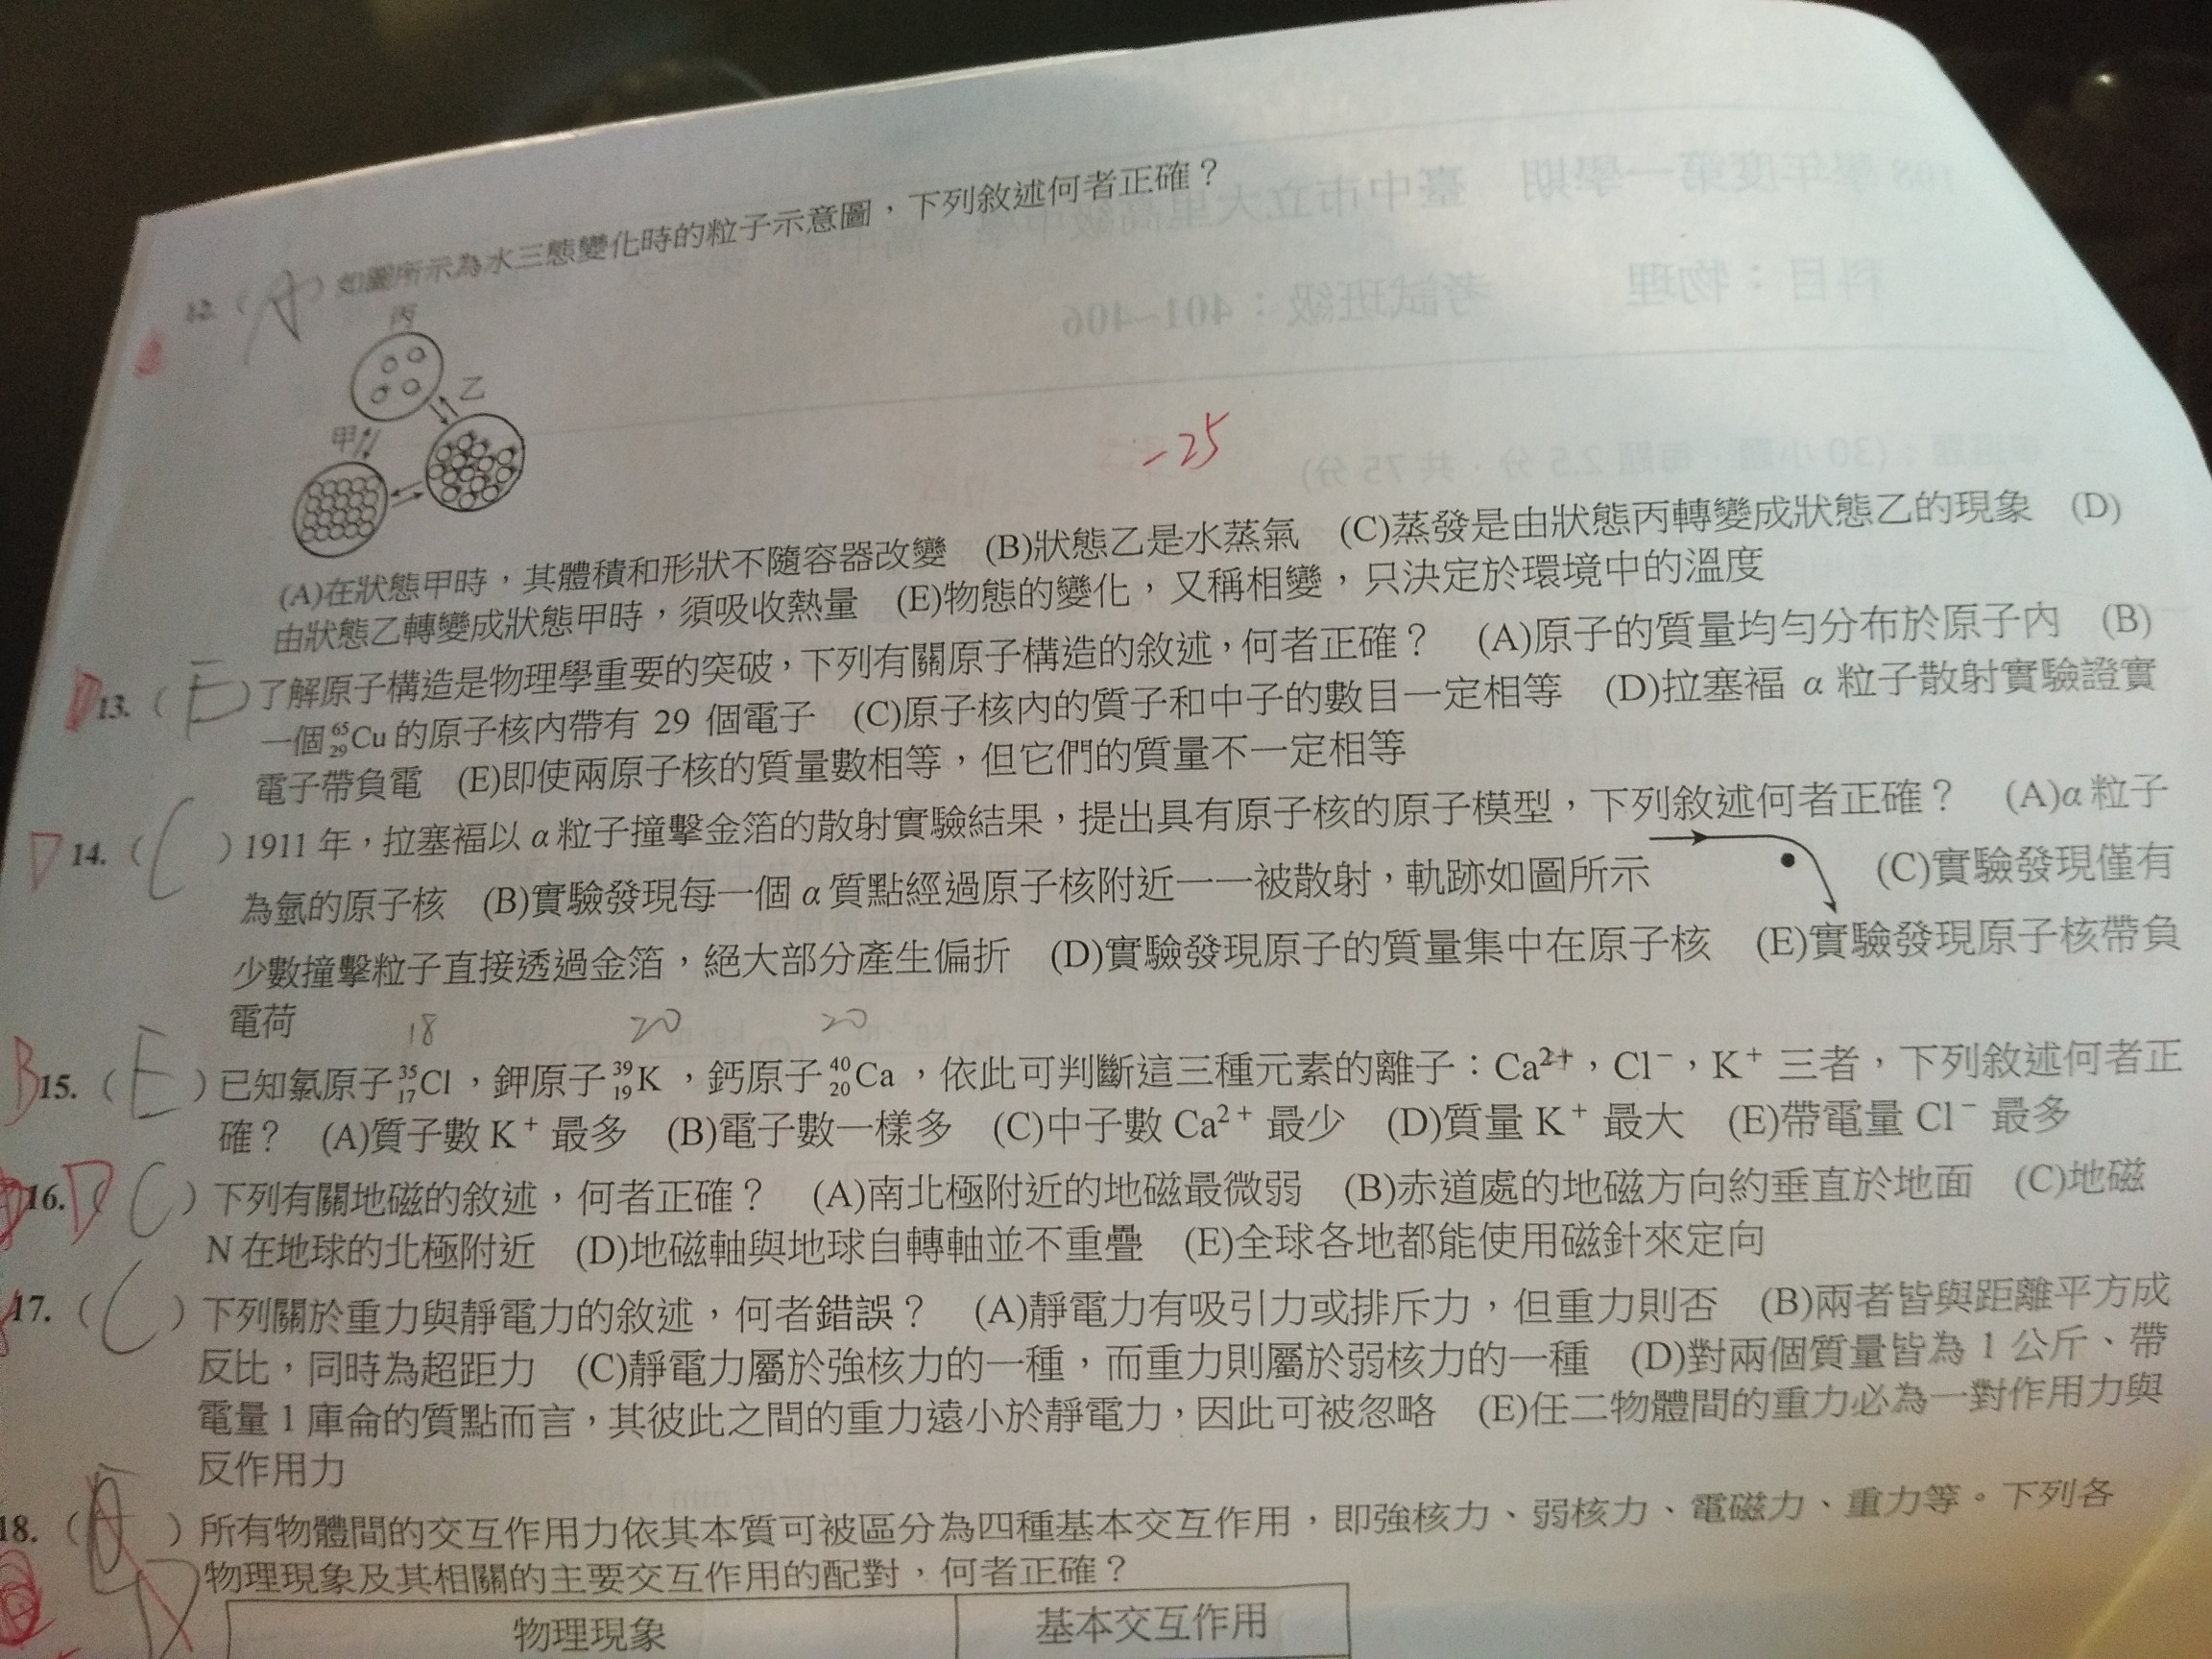 12. ( A ) 如圖所示為水三態變化時的粒子示意圖，下列敘述何者正確？
丙
乙
甲
-25
(A)在狀態甲時，其體積和形狀不隨容器改變　(B)狀態乙是水蒸氣　(C)蒸發是由狀態丙轉變成狀態乙的現象　(D)
由狀態乙轉變成狀態甲時，須吸收熱量　(E)物態的變化，又稱相變，只決定於環境中的溫度
D 13. ( E ) 了解原子構造是物理學重要的突破，下列有關原子構造的敘述，何者正確？　(A)原子的質量均勻分布於原子內　(B)
一個 ⁶⁵₂₉Cu 的原子核內帶有 29 個電子　(C)原子核內的質子和中子的數目一定相等　(D)拉塞福 α 粒子散射實驗證實
電子帶負電　(E)即使兩原子核的質量數相等，但它們的質量不一定相等
D 14. ( C ) 1911 年，拉塞福以 α 粒子撞擊金箔的散射實驗結果，提出具有原子核的原子模型，下列敘述何者正確？　(A)α 粒子
為氫的原子核　(B)實驗發現每一個 α 質點經過原子核附近一一被散射，軌跡如圖所示　(C)實驗發現僅有
少數撞擊粒子直接透過金箔，絕大部分產生偏折　(D)實驗發現原子的質量集中在原子核　(E)實驗發現原子核帶負
電荷
18 20 20
B 15. ( E ) 已知氯原子 ³⁵₁₇Cl，鉀原子 ³⁹₁₉K，鈣原子 ⁴⁰₂₀Ca，依此可判斷這三種元素的離子：Ca²⁺，Cl⁻，K⁺ 三者，下列敘述何者正
確？　(A)質子數 K⁺ 最多　(B)電子數一樣多　(C)中子數 Ca²⁺ 最少　(D)質量 K⁺ 最大　(E)帶電量 Cl⁻ 最多
16. D ( C ) 下列有關地磁的敘述，何者正確？　(A)南北極附近的地磁最微弱　(B)赤道處的地磁方向約垂直於地面　(C)地磁
N 在地球的北極附近　(D)地磁軸與地球自轉軸並不重疊　(E)全球各地都能使用磁針來定向
17. ( C ) 下列關於重力與靜電力的敘述，何者錯誤？　(A)靜電力有吸引力或排斥力，但重力則否　(B)兩者皆與距離平方成
反比，同時為超距力　(C)靜電力屬於強核力的一種，而重力則屬於弱核力的一種　(D)對兩個質量皆為 1 公斤、帶
電量 1 庫侖的質點而言，其彼此之間的重力遠小於靜電力，因此可被忽略　(E)任二物體間的重力必為一對作用力與
反作用力
18. ( ) 所有物體間的交互作用力依其本質可被區分為四種基本交互作用，即強核力、弱核力、電磁力、重力等。下列各
物理現象及其相關的主要交互作用的配對，何者正確？
物理現象　基本交互作用